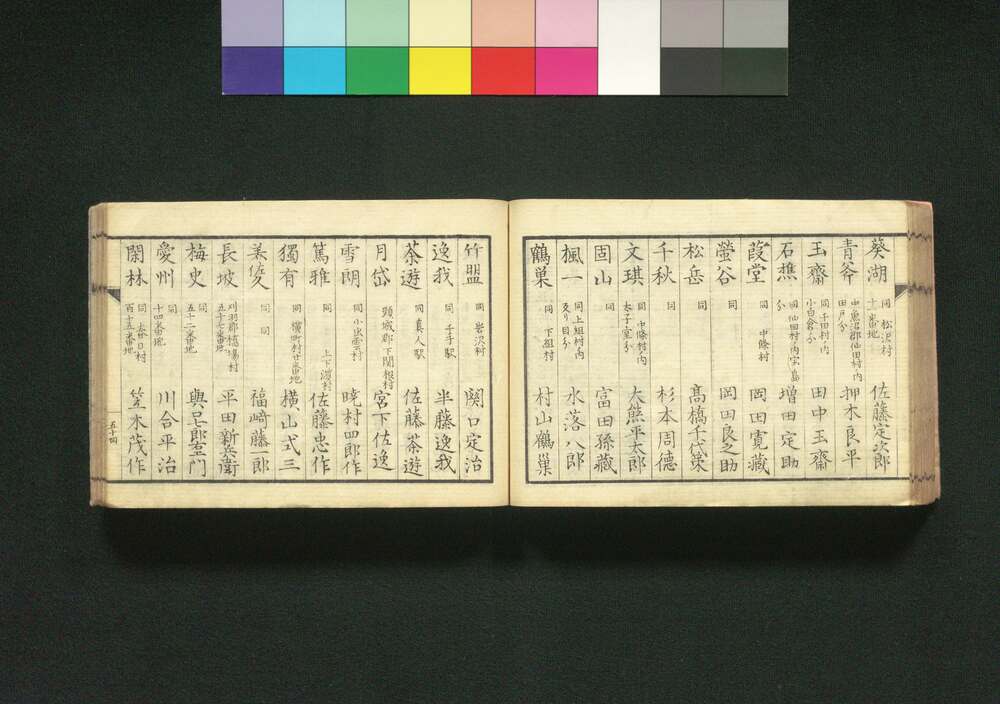 葵湖 同 松沢村十一番地 佐藤定次郎
青斧 中魚沼郡仙田村ノ内田戸分 押木良平
玉齋 同千田村ノ内小白倉分 田中玉齋
石樵 同仙田村ノ内 増田定助
葭堂 同 中條村 岡田寛藏
螢谷 同 岡田良之助
松岳 同 髙橋千代策
千秋 同 杉本周德
文琪 同 中條村ノ内太子堂分 大熊平太郎
固山 同 富田孫藏
楓一 同上組村ノ内 水落八郎
鶴巣 同 下組村 村山鶴巣
竹盟 同 岩沢村 関口定治
逸我 同 千手駅 半藤逸我
茶遊 同 真人駅 佐藤茶遊
月岱 頸城郡下関根村 宮下佐逸
雪朗 同 暁村四郎作
篤雅 同 上下濵村 佐藤忠作
獨有 同 横町村廿番地 横山弍三
同 同 福﨑藤一郎
長坡 刈羽郡 五十七番地 平田新兵衛
梅史 同 五十二番地 與口郎右エ門
愛州 同 十四番地 川合平治
閑林 同 百十五番地 笠木茂作
五十四